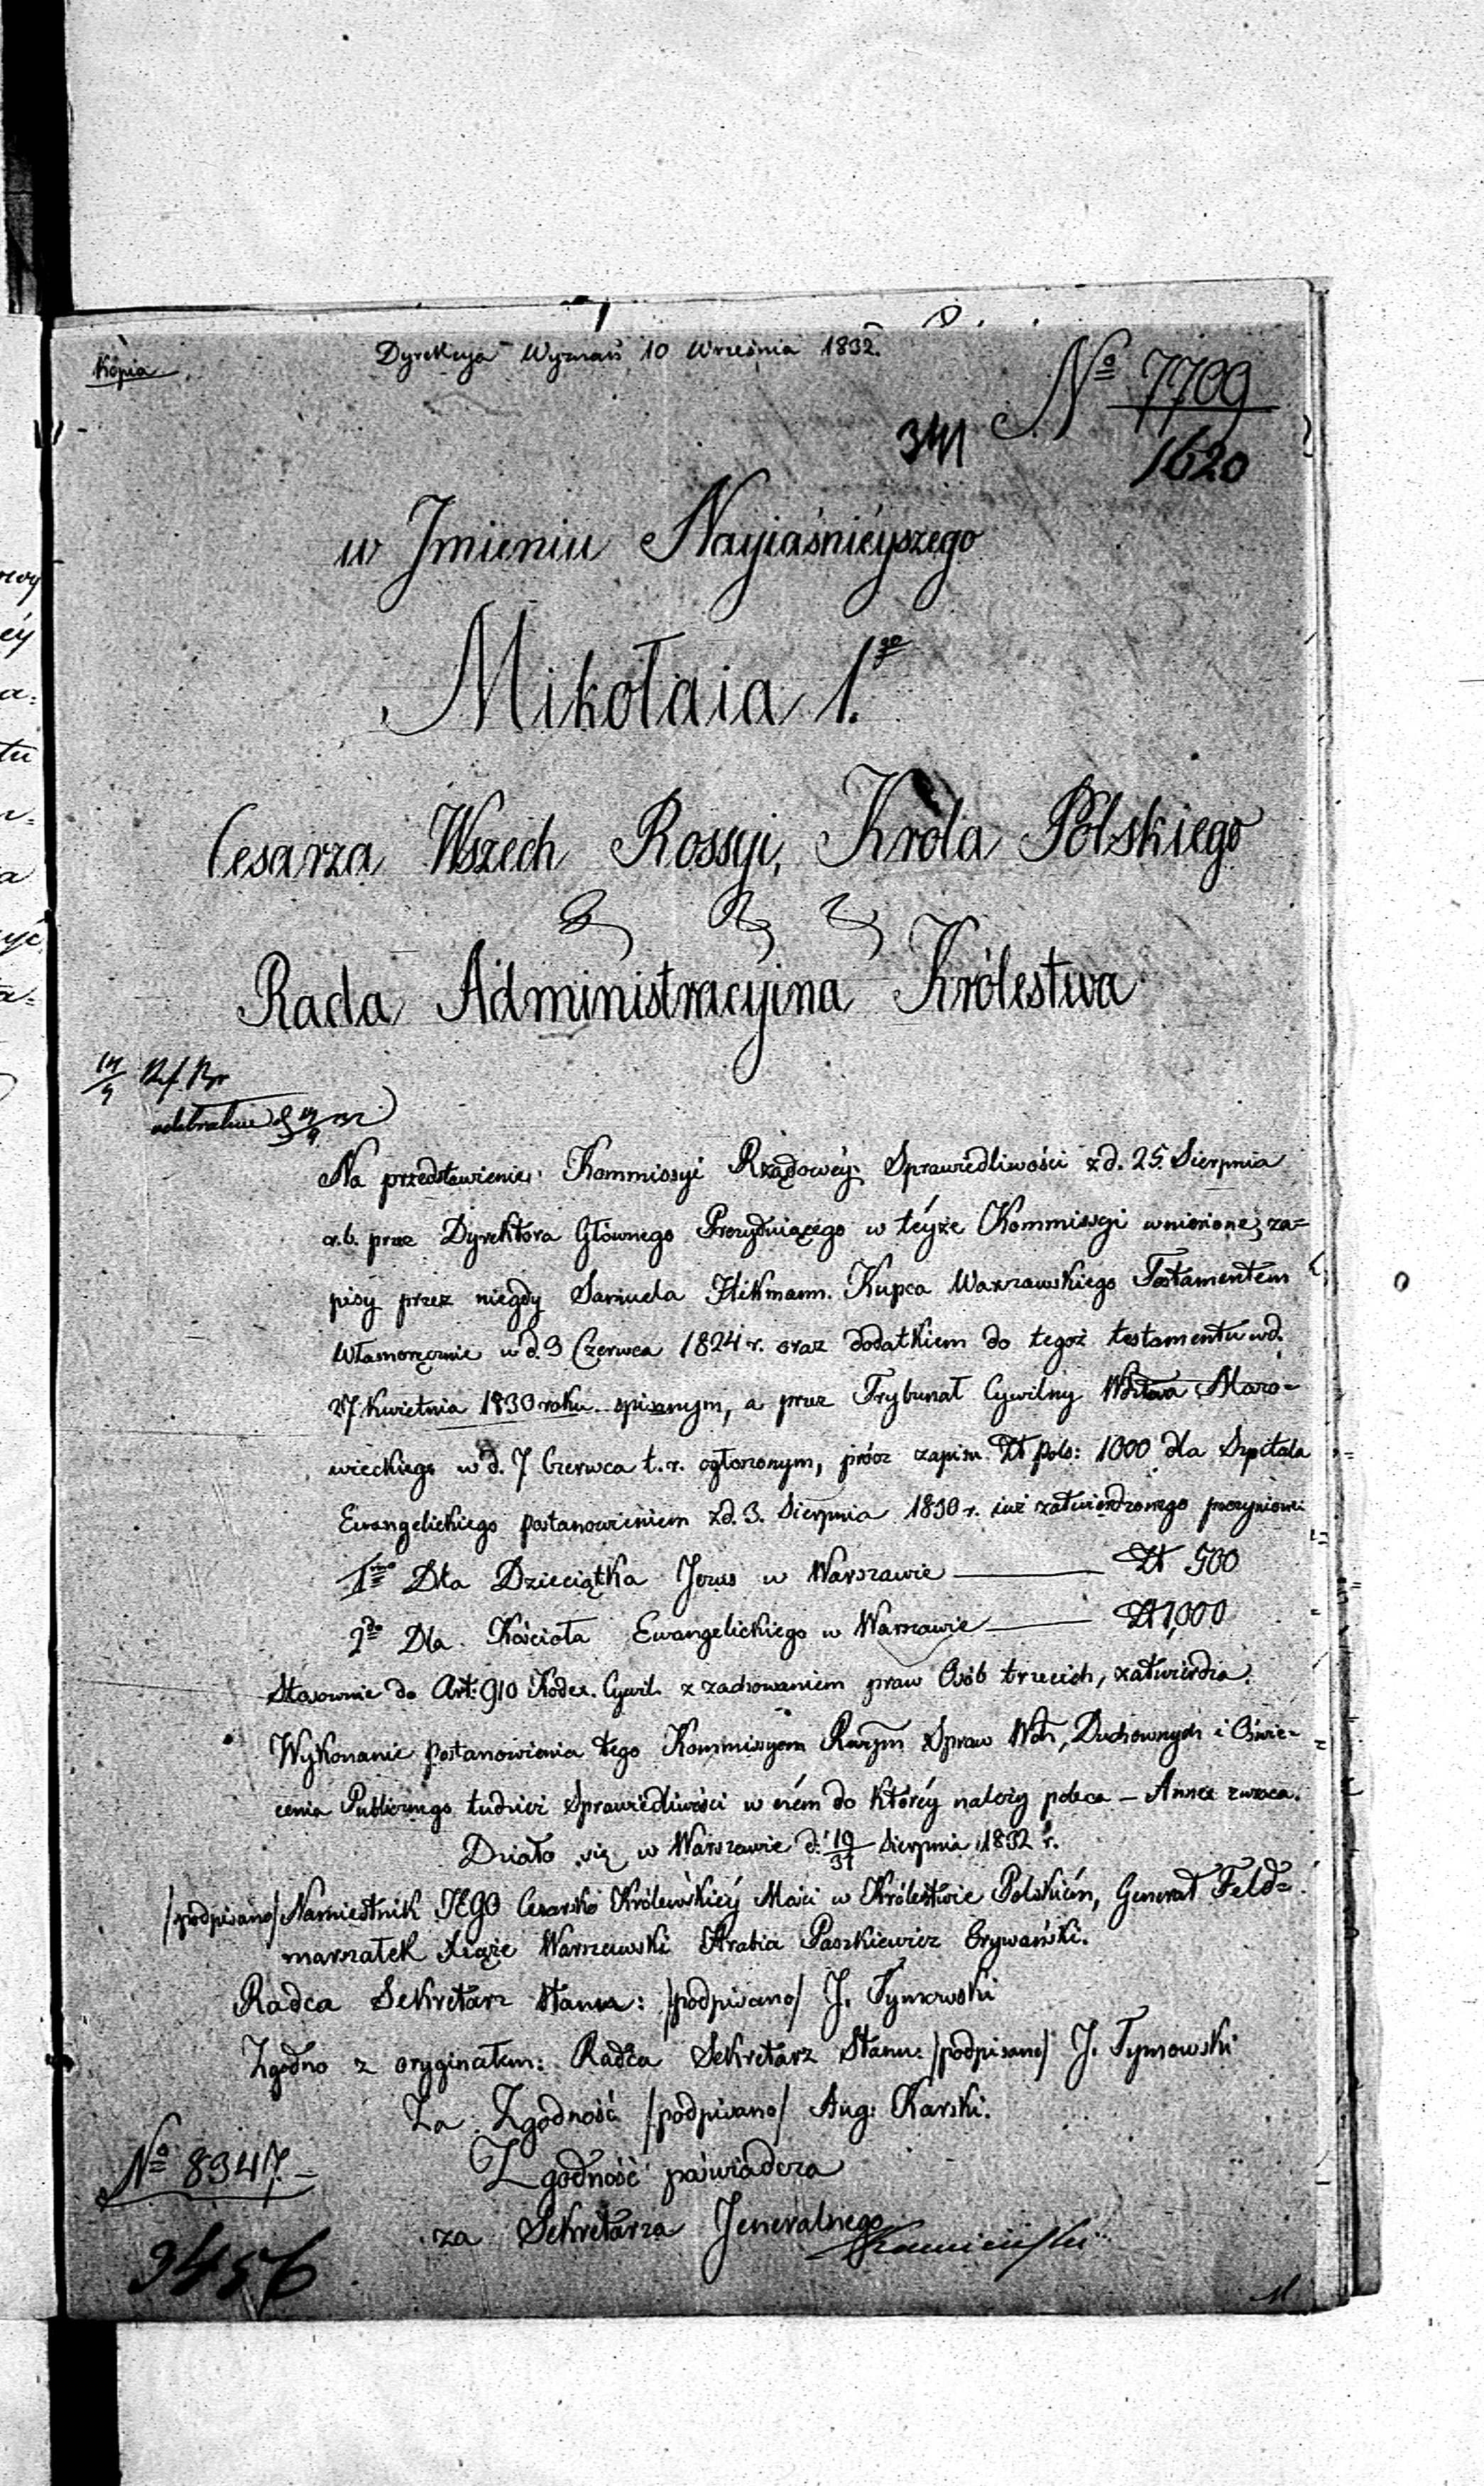 Kopia
Dyrekcya Wyznań 10 Września 1832.
No 7709
1620
341
w Jmieniu Nayiaśnieyszego
Mikołaia 1.go
Cesarza Wszech Rossyi, Króla Polskiego
Rada Administracyina Królestwa
Na przedstawienie Kommissyi Rządowéy Sprawiedliwości z d. 25 Sierpnia
r.b. przez Dyrektora Głównego Prezyduiącego w téyże Kommissyi wniesione, za=
pisy przez niegdy Samuela Hikmann Kupca Warszawskiego Testamentem
Własnoręcznie w d. 9 Czerwca 1824 r. oraz dodatkiem do tegoż testamentu w d.
27 Kwietnia 1830 roku spisanym, a przez Trybunał Cywilny Wdztwa Mazo=
wieckiego w d. 7 Czerwca t.r. ogłoszonym, prócz zapisu Zł pols: 1000 dla Szpitala
Ewangelickiego postanowieniem z d. 3. Sierpnia 1830 r. iuż zatwierdzonego poczynione
1mo Dla Dzieciątka Jezus w Warszawie — Zł 500
2do Dla Kościoła Ewangelickiego w Warszawie — Zł 1,000
Stosownie do Art: 910 Kodex. Cywil. z zachowaniem praw Osób trzecich, zatwierdza.
Wykonanie postanowienia tego Kommissyom Rwym Spraw Wch, Duchownych i Oświe=
cenia Publicznego tudzież Sprawiedliwości w czém do któréy należy poleca — Annex zwraca.
Działo się w Warszawie d. 19/31 Sierpnia 1832 r.
/podpisano/ Namiestnik JEGO Cesarsko Królewskiéy Mości w Królestwie Polskiém, Generał Feld=
marszałek Xiąże Warszawski Hrabia Paszkiewicz Erywański.
Radca Sekretarz Stanu: /podpisano/ J. Tymowski
Zgodno z oryginałem: Radca Sekretarz Stanu: /podpisano/ J. Tymowski
Za Zgodność /podpisano/ Aug: Karski.
Zgodność poświadcza
za Sekretarza Jeneralnego
Kamieński
No 8347.
9456